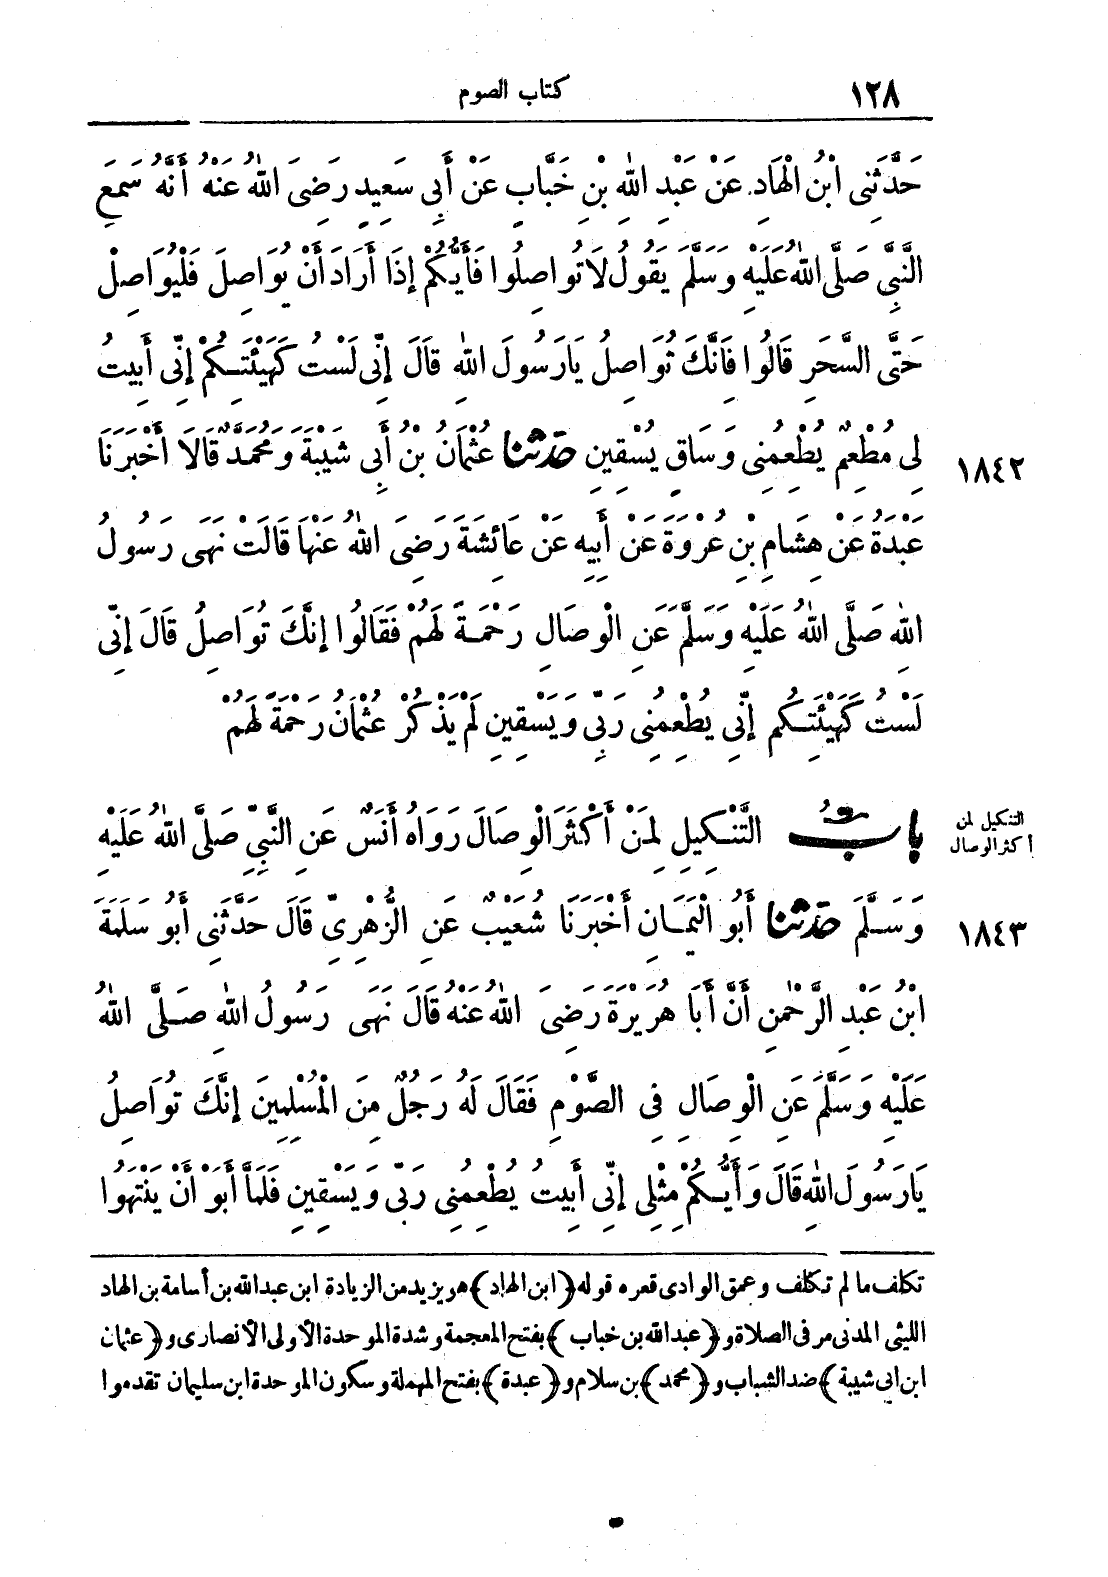 ١٢٨
كتاب الصوم
حَدَّثَنِى ابْنُ الْهَادِ. عَنْ عَبْدِ اللّٰهِ بْنِ خَبَّابٍ عَنْ أَبِى سَعِيدٍ رَضِىَ اللّٰهُ عَنْهُ أَنَّهُ سَمِعَ
النَّبِىَّ صَلَّى اللّٰهُ عَلَيْهِ وَسَلَّمَ يَقُولُ لَا تُوَاصِلُوا فَأَيُّكُمْ إِذَا أَرَادَ أَنْ يُوَاصِلَ فَلْيُوَاصِلْ
حَتَّى السَّحَرِ قَالُوا فَإِنَّكَ تُوَاصِلُ يَا رَسُولَ اللّٰهِ قَالَ إِنِّى لَسْتُ كَهَيْئَتِكُمْ إِنِّى أَبِيتُ
لِى مُطْعِمٌ يُطْعِمُنِى وَسَاقٍ يَسْقِينِ حدثنا عُثْمَانُ بْنُ أَبِى شَيْبَةَ وَمُحَمَّدٌ قَالَا أَخْبَرَنَا
١٨٤٢
عَبْدَةُ عَنْ هِشَامِ بْنِ عُرْوَةَ عَنْ أَبِيهِ عَنْ عَائِشَةَ رَضِىَ اللّٰهُ عَنْهَا قَالَتْ نَهَى رَسُولُ
اللّٰهِ صَلَّى اللّٰهُ عَلَيْهِ وَسَلَّمَ عَنِ الْوِصَالِ رَحْمَةً لَهُمْ فَقَالُوا إِنَّكَ تُوَاصِلُ قَالَ إِنِّى
لَسْتُ كَهَيْئَتِكُمْ إِنِّى يُطْعِمُنِى رَبِّى وَيَسْقِينِ لَمْ يَذْكُرْ عُثْمَانُ رَحْمَةً لَهُمْ
بابُ التَّنْكِيلِ لِمَنْ أَكْثَرَ الْوِصَالَ رَوَاهُ أَنَسٌ عَنِ النَّبِىِّ صَلَّى اللّٰهُ عَلَيْهِ
التنكيل لمن
أكثر الوصال
وَسَلَّمَ حدثنا أَبُو الْيَمَانِ أَخْبَرَنَا شُعَيْبٌ عَنِ الزُّهْرِىِّ قَالَ حَدَّثَنِى أَبُو سَلَمَةَ
١٨٤٣
ابْنُ عَبْدِ الرَّحْمٰنِ أَنَّ أَبَا هُرَيْرَةَ رَضِىَ اللّٰهُ عَنْهُ قَالَ نَهَى رَسُولُ اللّٰهِ صَلَّى اللّٰهُ
عَلَيْهِ وَسَلَّمَ عَنِ الْوِصَالِ فِى الصَّوْمِ فَقَالَ لَهُ رَجُلٌ مِنَ الْمُسْلِمِينَ إِنَّكَ تُوَاصِلُ
يَا رَسُولَ اللّٰهِ قَالَ وَأَيُّكُمْ مِثْلِى إِنِّى أَبِيتُ يُطْعِمُنِى رَبِّى وَيَسْقِينِ فَلَمَّا أَبَوْا أَنْ يَنْتَهُوا
تكلف ما لم تكلف وعمق الوادى قعره قوله ﴿ابن الهاد﴾ هو يزيد من الزيادة ابن عبد الله بن أسامة بن الهاد
الليثى المدنى مر فى الصلاة و﴿عبد الله بن خباب﴾ بفتح المعجمة وشدة الموحدة الأولى الأنصارى و﴿عثمان
ابن ابى شيبة﴾ ضد الشباب و﴿محمد﴾ بن سلام و﴿عبدة﴾ بفتح المهملة وسكون الموحدة ابن سليمان تقدموا